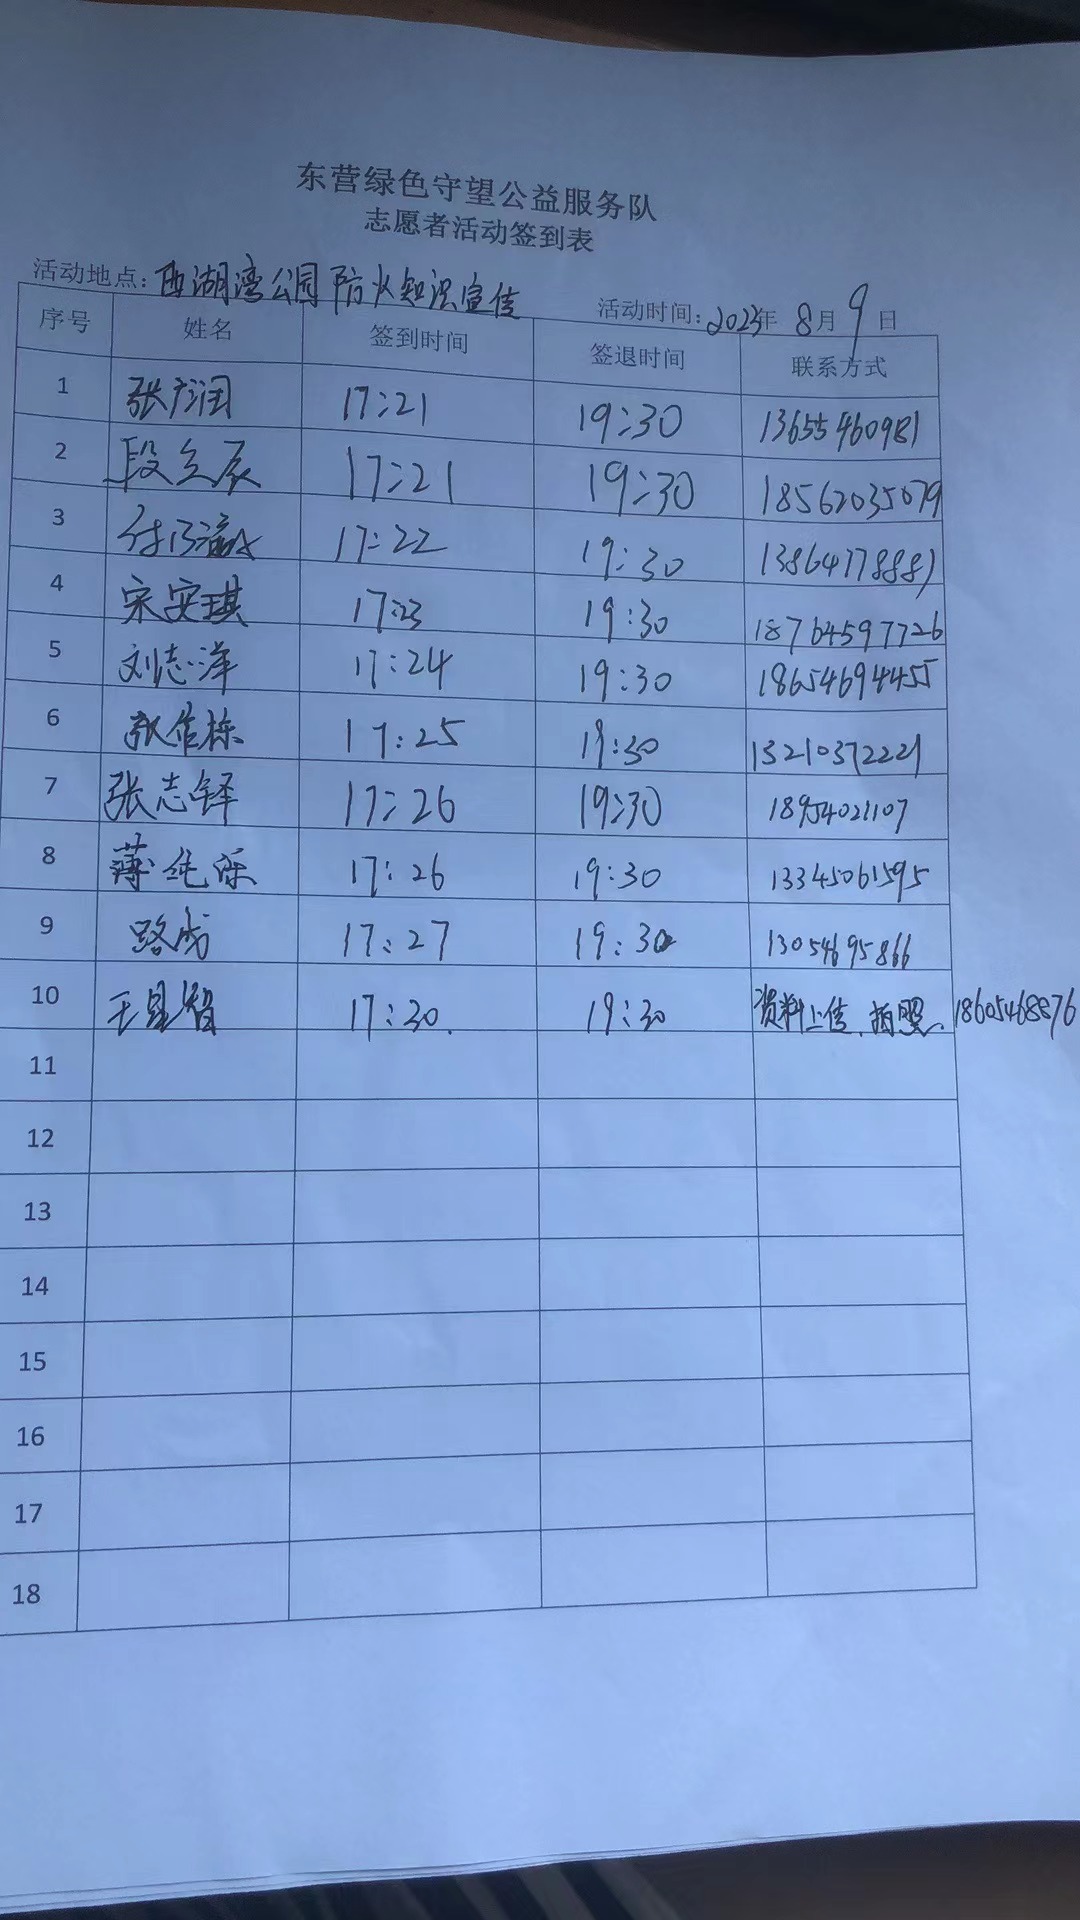 东营绿色守望公益服务队
志愿者活动签到表
活动地点：西湖湾公园防火知识宣传 活动时间：2023年 8月 9日
序号 姓名 签到时间 签退时间 联系方式
1 张广润 17:21 19:30 13655460981
2 段立辰 17:21 19:30 18562035079
3 17:22 19:30 13864778881
4 宋安琪 17:23 19:30 18764597726
5 刘志洋 17:24 19:30 18654694455
6 张佳栋 17:25 19:30 13210372221
7 张志铎 17:26 19:30 18954021107
8 薄纯泺 17:26 19:30 13345061595
9 路成 17:27 19:30 13054695866
10 王星智 17:30. 19:30 资料上传、拍照、18605468876
11
12
13
14
15
16
17
18